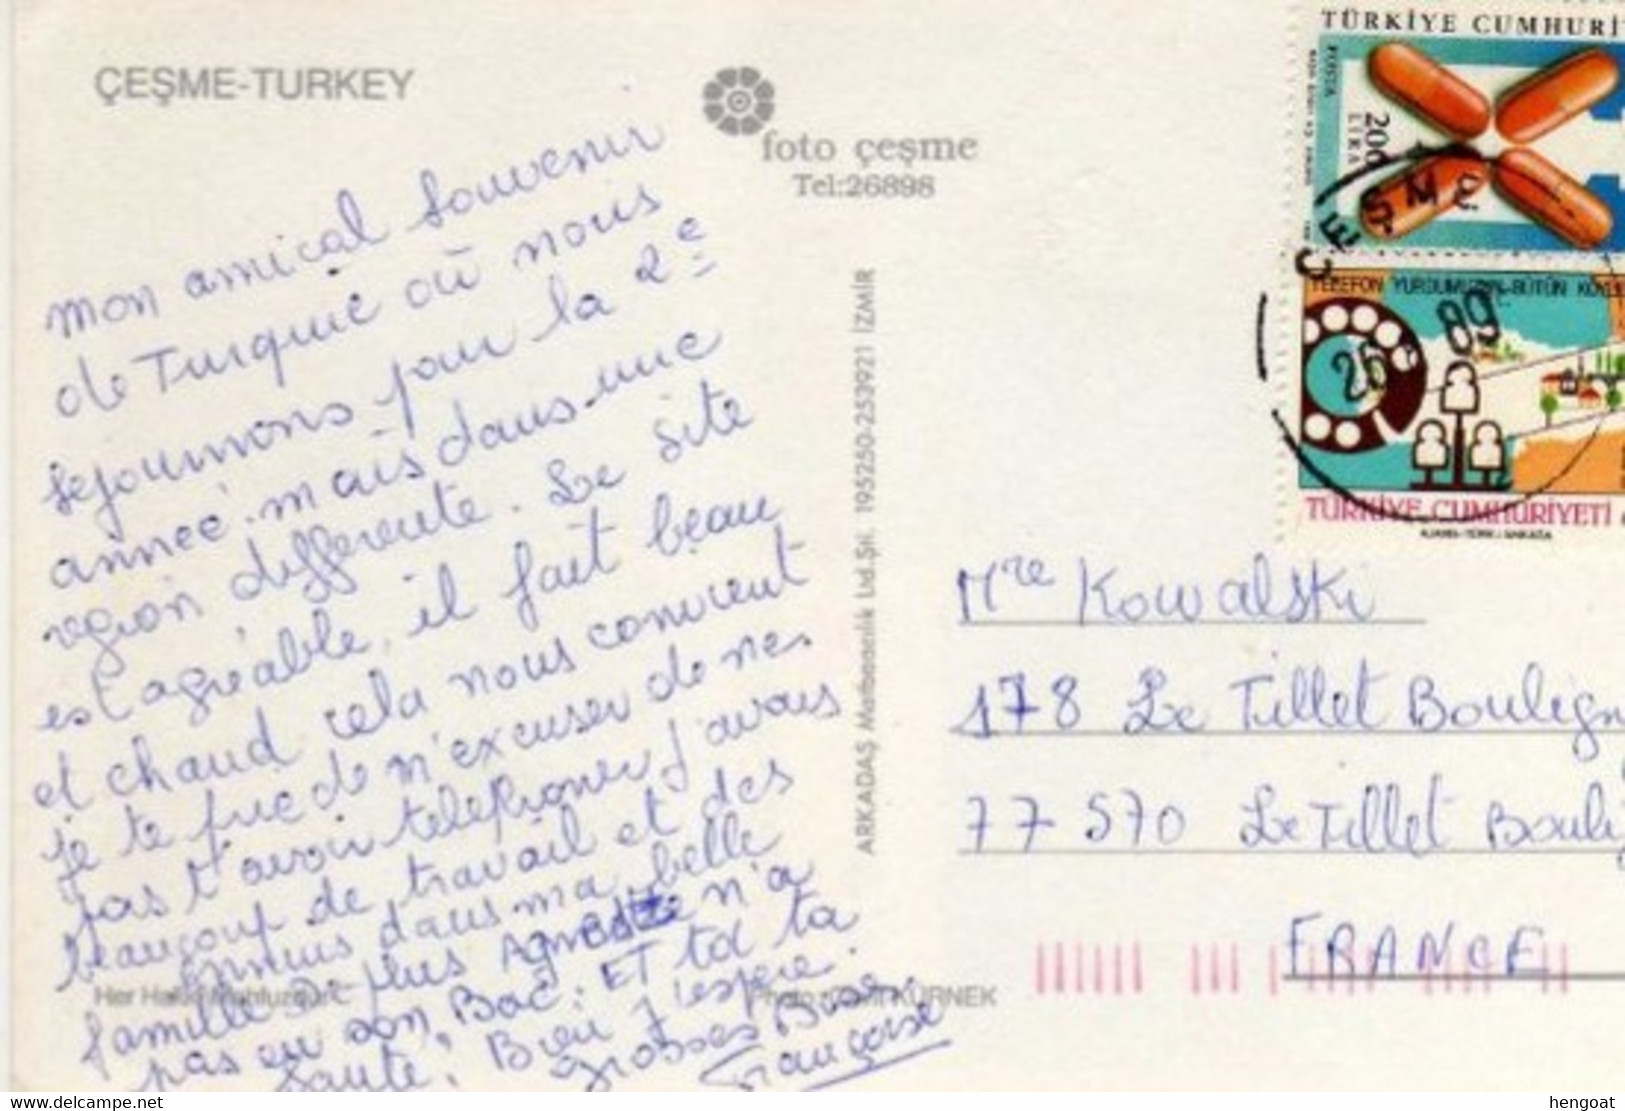 ÇEŞME-TURKEY
foto çeşme
Tel:26898
mon amical souvenir
de Turquie où nous
séjournons pour la 2e
année. mais dans une
région différente. Le site
est agréable, il fait beau
et chaud cela nous convient
je te prie de m'excuser de ne
pas t'avoir téléphoner j'avais
beaucoup de travail et des
ennuis dans ma belle
famille de plus Agnès n'a
pas eu son Bac. ET toi ta
santé. Bien j'espère.
grosses Bises
Françoise
Her Hakkı Mahfuzdur
Photo: KÜRNEK
ARKADAŞ Matbaacılık Ltd.Şti. 195250-253921 İZMİR
TÜRKİYE CUMHURİ
POSTA
200
LİRA
ÇEŞME
26 89
TELEFON YURDUMUZUN BÜTÜN KÖYLE
TÜRKİYE CUMHURİYETİ
AJANS-TÜRK / ANKARA
Mre Kowalski
178 Le Tillet Boulign
77 570 Le Tillet Bouli
FRANCE
hengoat
hengoat